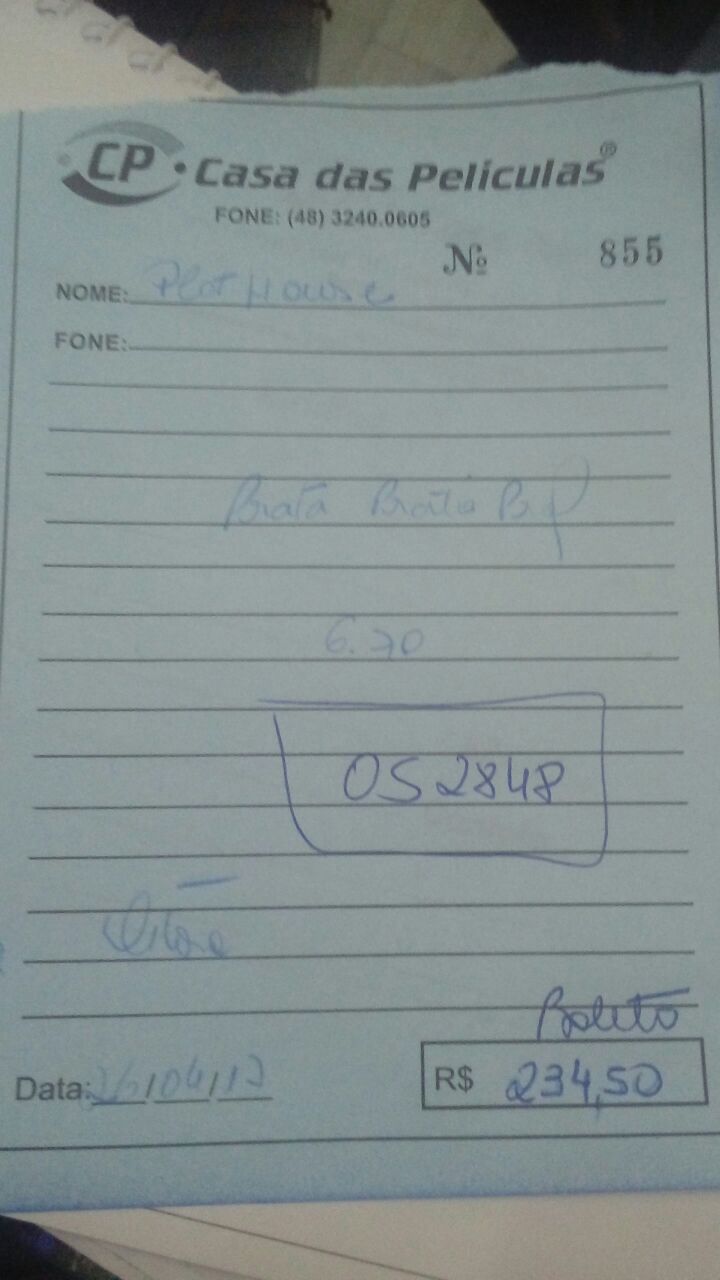 CP • Casa das Películas®
FONE: (48) 3240.0605
Nº 855
NOME: Plot House
FONE:
6.70
OS 2848
Boleto
Data: 26/04/17
R$ 234,50